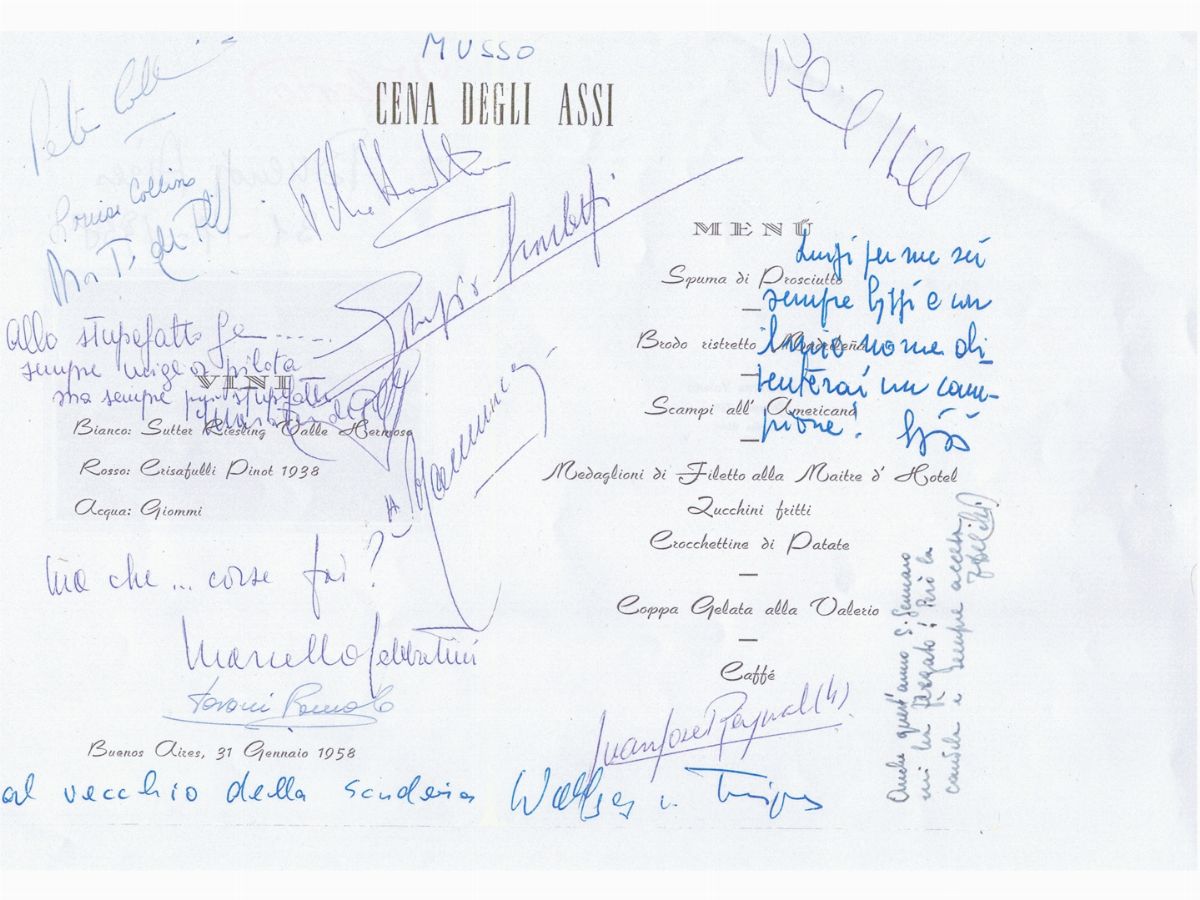 MUSSO
CENA DEGLI ASSI
Peter Collins
Phil Hill
Louise Collins
MENÚ
Luigi per me sei
Spuma di Prosciutto
sempre e un
Brodo ristretto Madrileña
nome di-
venterai un cam-
Scampi all' Americana
pione!
Allo stupefatto
sempre miglior pilota
ma sempre più stupefatto
VINI
Bianco: Sutter Riesling Valle Hermoso
Rosso: Crisafulli Pinot 1938
Acqua: Giommi
Medaglioni di Filetto alla Maitre d' Hotel
Zucchini fritti
Crocchettine di Patate
Coppa Gelata alla Valerio
Caffé
Ma che ... corse fai?
Marcello Sabbatini
Romolo
Juan Jose Raynal (4)
Buenos Aires, 31 Gennaio 1958
al vecchio della scuderia Wolfgang v. Trips
Anche quest'anno S. Gennaro
mi ha fregato! Però la
candela è sempre accesa